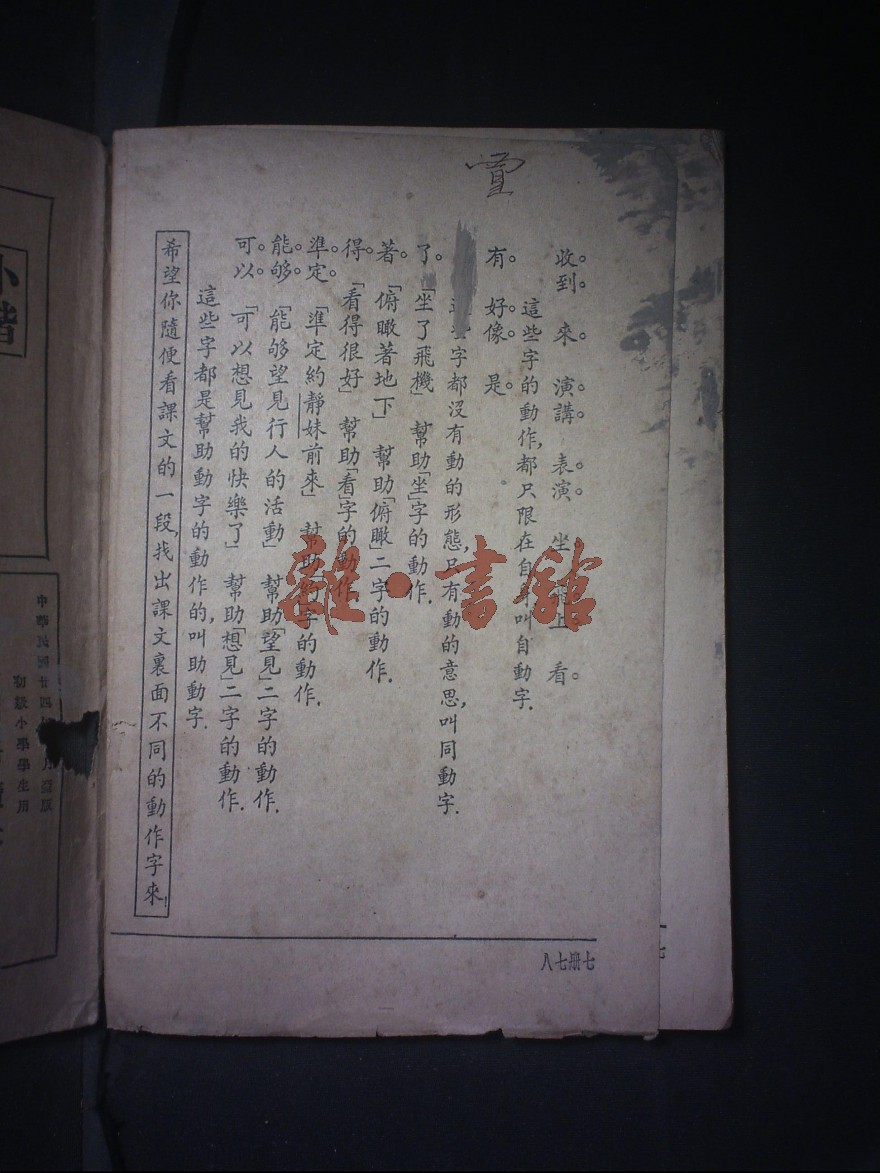 收到。來。演講。表演。坐 上 看。
這些字的動作，都只限在自身叫自動字．
有。好像。是。
這些字都沒有動的形態，只有動的意思，叫同動字．
了。「坐了飛機」幫助「坐」字的動作．
著。「俯瞰著地下」幫助「俯瞰」二字的動作．
得。「看得很好」幫助「看」字的動作．
準定。「準定約靜妹前來」幫助「約」字的動作．
能够。「能够望見行人的活動」幫助「望見」二字的動作．
可以。「可以想見我的快樂了」幫助「想見」二字的動作．
這些字都是幫助動字的動作的，叫助動字．
希望你隨便看課文的一段，找出課文裏面不同的動作字來！
八七册七
雜·書館
小
中華民國廿四 版
初級小學學生用